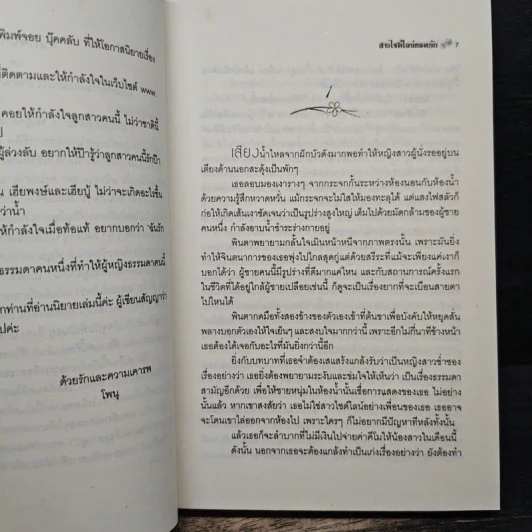 พิมพ์จอย บุ๊คคลับ ที่ให้โอกาสนิยายเรื่อง
ที่ติดตามและให้กำลังใจในเว็บไซต์ www.
คอยให้กำลังใจลูกสาวคนนี้ ไม่ว่าชาตินี้
ป
ผู้ล่วงลับ อยากให้ป๊ารู้ว่าลูกสาวคนนี้รักป๊า
น เฮียพงษ์และเฮียบู้ ไม่ว่าจะเกิดอะไรขึ้น
ว่าน้ำ
ให้กำลังใจเมื่อท้อแท้ อยากบอกว่า ฉันรัก
ธรรมดาคนหนึ่งที่ทำให้ผู้หญิงธรรมดาคนนี้
กท่านที่อ่านนิยายเล่มนี้ค่ะ ผู้เขียนสัญญาว่า
ปค่ะ
ด้วยรักและความเคารพ
โพนุ
สาวไซด์ไลน์ยอดรัก 7
1
เสียงน้ำไหลจากฝักบัวดังมากพอทำให้หญิงสาวผู้นั่งรออยู่บน
เตียงด้านนอกสะดุ้งเป็นพักๆ
เธอลอบมองเงารางๆ จากกระจกกั้นระหว่างห้องนอนกับห้องน้ำ
ด้วยความรู้สึกหวาดหวั่น แม้กระจกจะไม่ใสให้มองทะลุได้ แต่แสงไฟสลัวก็
ก่อให้เกิดเส้นเงาชัดเจนว่าเป็นรูปร่างสูงใหญ่ เต็มไปด้วยมัดกล้ามของผู้ชาย
คนหนึ่ง กำลังอาบน้ำชำระร่างกายอยู่
พินตาพยายามกลั้นใจเมินหน้าหนีจากภาพตรงนั้น เพราะมันยิ่ง
ทำให้จินตนาการของเธอพุ่งไปไกลสุดกู่ แต่ด้วยสรีระที่แม้จะเพียงแค่เงาก็
บอกได้ว่า ผู้ชายคนนี้มีรูปร่างที่ดีมากแค่ไหน และกับสถานการณ์ครั้งแรก
ในชีวิตที่ได้อยู่ใกล้ผู้ชายเปลือยเช่นนี้ ก็ดูจะเป็นเรื่องยากที่จะเบือนสายตา
ไปไหนได้
พินตากดมือทั้งสองข้างของตัวเองเข้าที่ต้นขาเพื่อบังคับให้หยุดสั่น
พลางบอกตัวเองให้ใจเย็นๆ และสงบใจมากกว่านี้ เพราะอีกไม่กี่นาทีข้างหน้า
เธอต้องได้เจอกับอะไรที่มันยิ่งกว่านี้อีก
ยิ่งกับบทบาทที่เธอจำต้องเสแสร้งแกล้งรับว่าเป็นหญิงสาวช่ำชอง
เรื่องอย่างว่า เธอยิ่งต้องพยายามระงับและข่มใจให้เห็นว่า เป็นเรื่องธรรมดา
สามัญอีกด้วย เพื่อให้ชายหนุ่มในห้องน้ำนั้นเชื่อการแสดงของเธอ ไม่อย่าง
นั้นแล้ว หากเขาสงสัยว่า เธอไม่ใช่สาวไซด์ไลน์อย่างเพื่อนของเธอ เธออาจ
จะโดนเขาไล่ออกจากห้องไป เพราะใครๆ ก็ไม่อยากมีปัญหาที่หลังทั้งนั้น
แล้วเธอก็จะลำบากที่ไม่มีเงินไปจ่ายค่าดีโมให้น้องสาวในเดือนนี้
ดังนั้น นอกจากเธอจะต้องแกล้งทำเป็นเก่งเรื่องอย่างว่า ยังต้องทำ